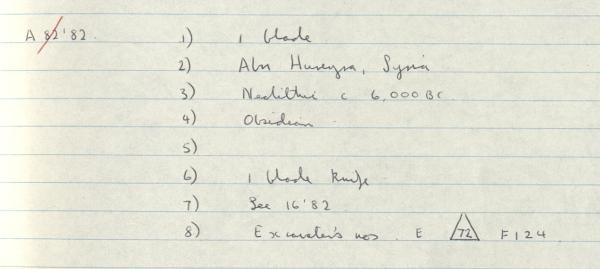 A 82'82. 1) 1 blade
2) Abu Hureyra, Syria
3) Neolithic c 6,000 BC.
4) Obsidian
5)
6) 1 blade knife
7) See 16'82
8) Excavator's nos. E 72 F124